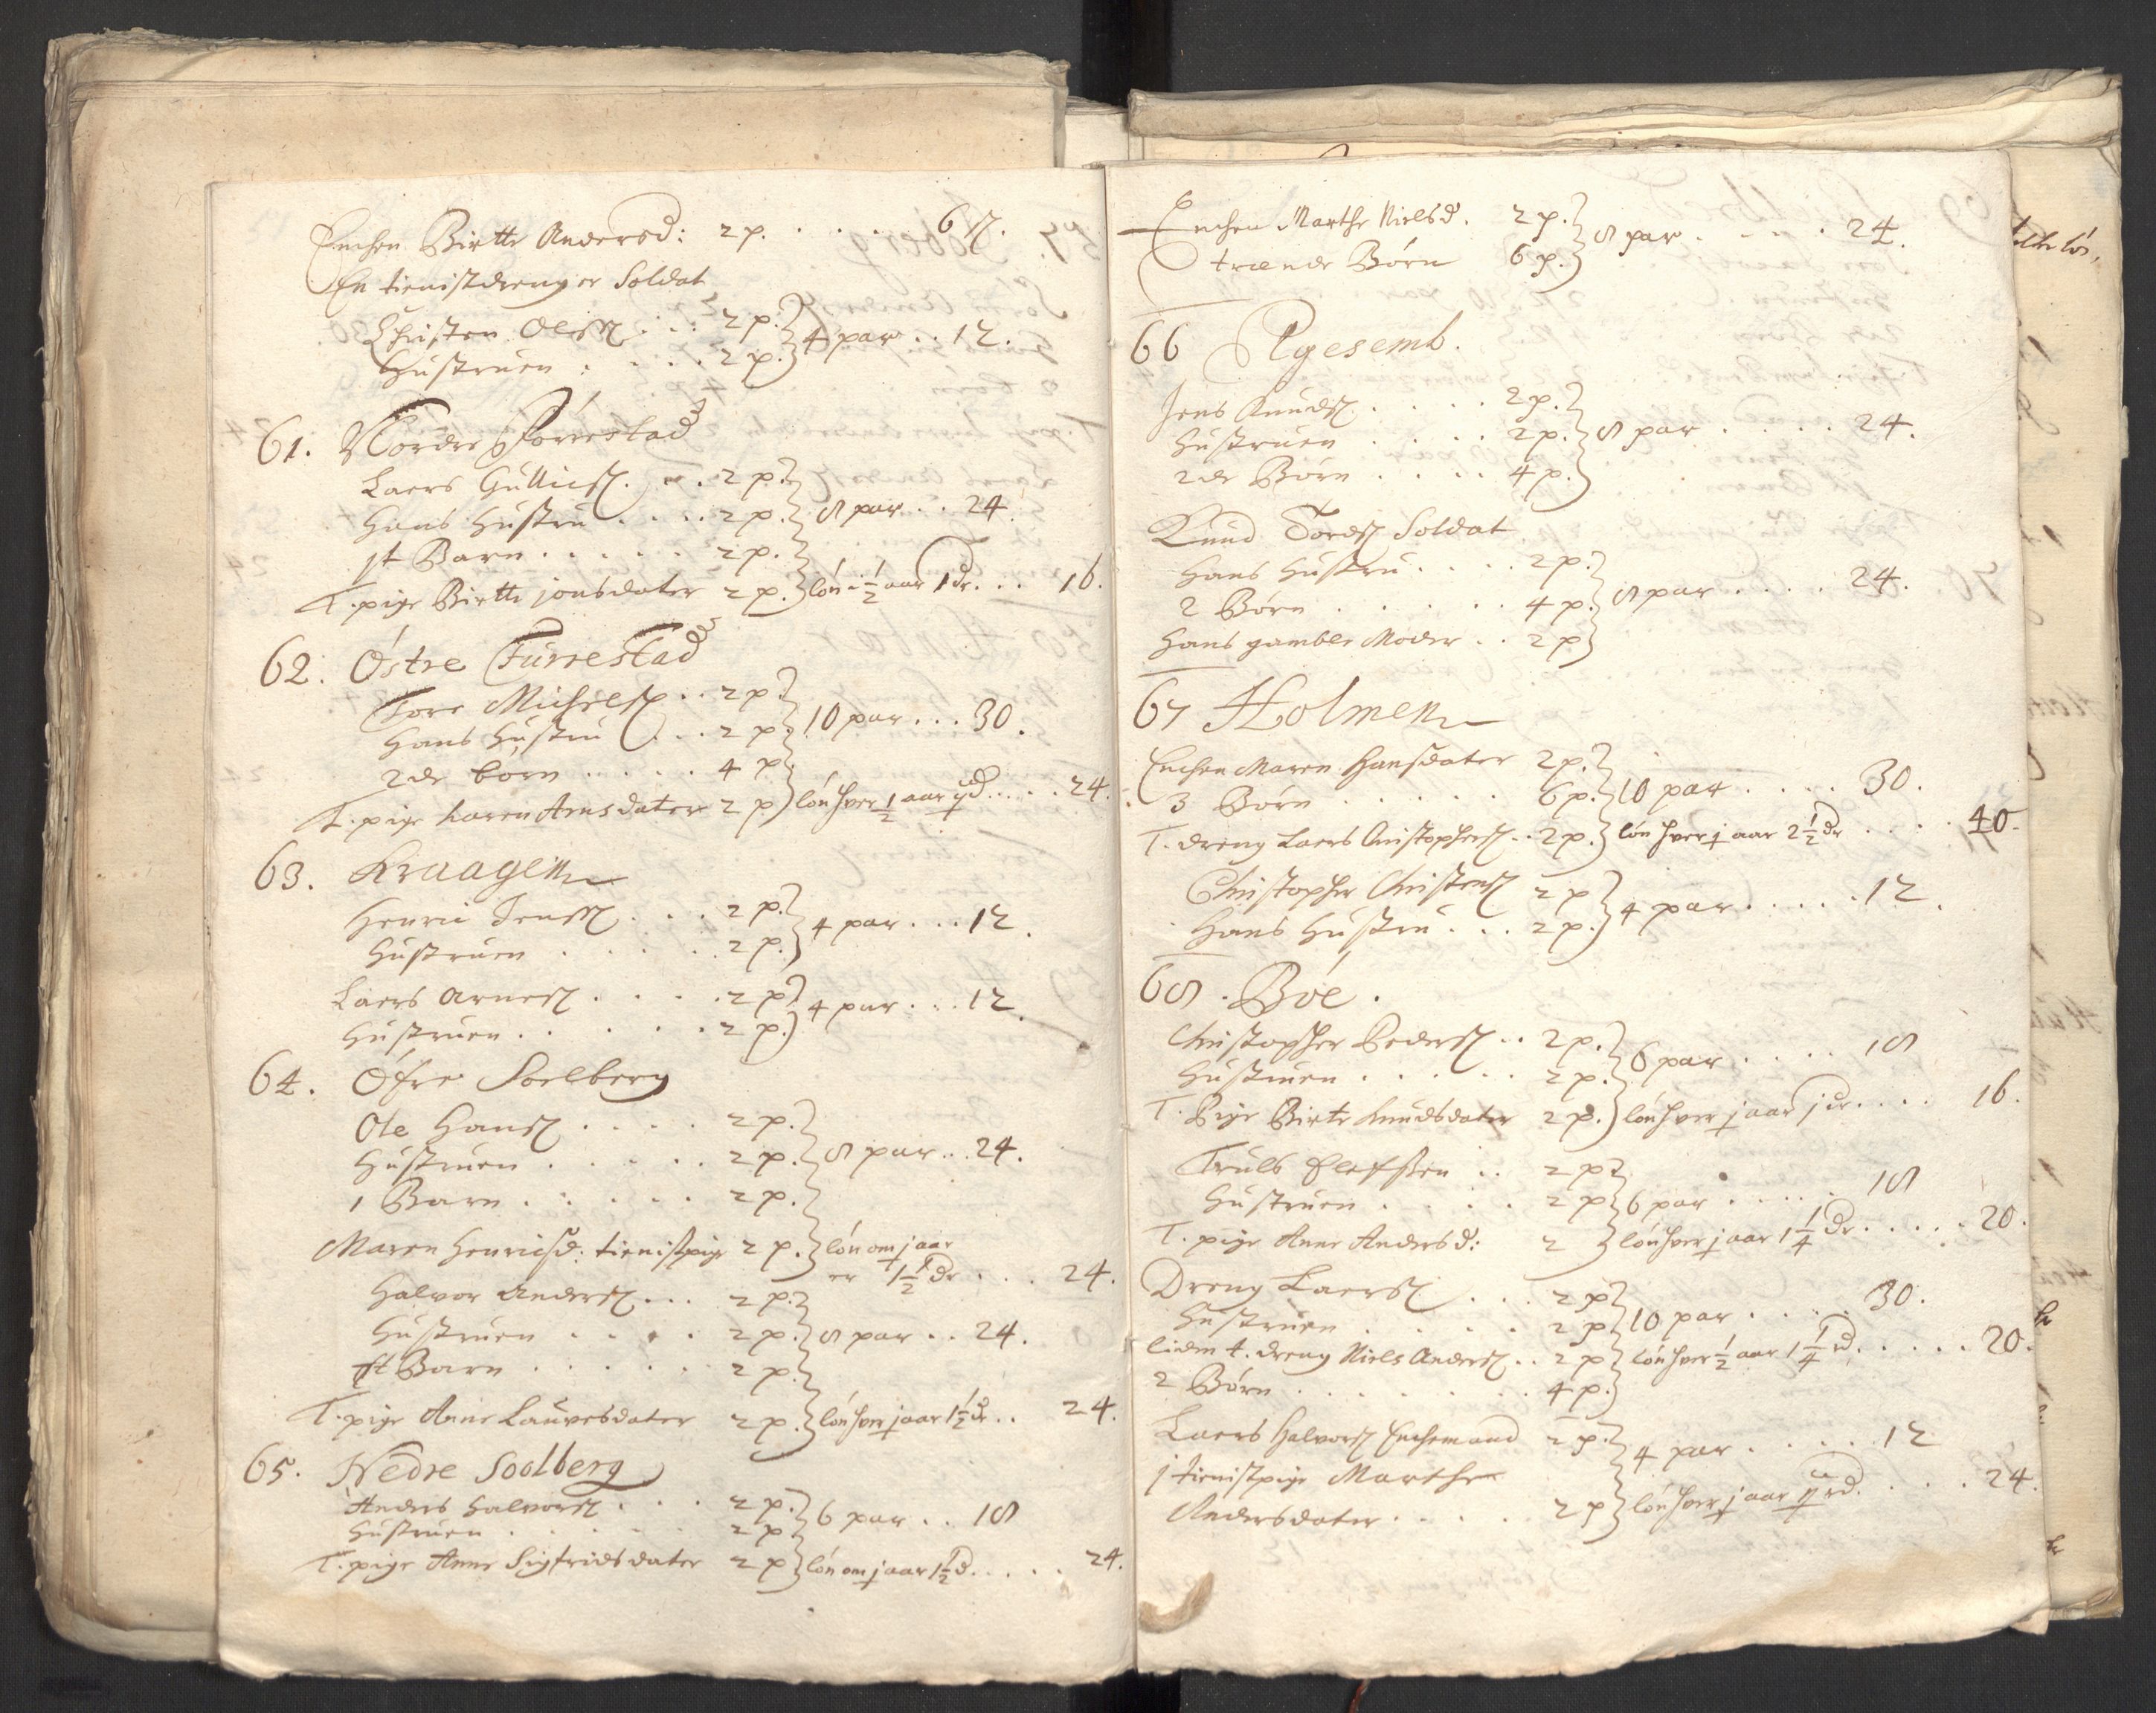 Enchen Birtte Andersd: 2 p. . . . . 6 ß.
En tienistdreng er Soldat
Christen Olesß . . . 2 p.
4 par . . 12.
Hustruen . . . . 2 p.
61. Nordre Fórrestad
Laers Gullicß. . . 2 p.
Hans Hustru . . . . 2 p. 8 par . . 24.
1t Barn . . . . . 2 p.
T. pige Birtte jonsdater 2 p. lón i ½ aar 1 dr. . . 16.
62. Óstre Fúrrestad
Tore Michelß . . 2 p.
Hans Hustru . . . 2 p. 10 par . . . 30.
2de bórn . . . . . 4 p
T. pige Karen Arnsdater 2 p lón hver ½ aar 24.
63. Kraagen
Henric Jensß . . . 2 p.
4 par . . . 12.
Hustruen . . . . . 2 p.
Laers Arnesß . . . . 2 p
4 par . . . 12.
Hustruen . . . . . 2 p.
64. Ófre Soelberg
Ole Hansß . . . . 2 p.
Hustruen . . . . . 2 p. 8 par . . 24.
1 Barn . . . . . 2 p.
Maren Henricsd: tienistpige 2 p. lón om j aar
er 1½ dr . . . 24.
Halvor Andersß . . . 2 p.
Hustruen . . . . 2 p. 8 par . . 24.
1t Barn . . . . . . 2 p.
T. pige Anne Lauresdater 2 p. lón hver j aar 1½ dr . . 24.
65. Nedre Soelberg
Anders Halvorsß . . . 2 p.
6 par . . 18
Hustruen . . . . . . 2 p
T. pige Anne Sigfridsdater 2 p lón om j aar 1½ d. . . . . 24.
Enchen Marthe Nielsd. 2 p.
8 par . . . . 24.
trende Bórn 6 p.
66 Rygesemb.
Jens Knudsß . . . . 2 p.
Hustruen . . . . 2 p. 8 par . . . . 24.
2de Bórn . . . . 4 p.
Knud Tordsß Soldat
Hans Hustru . . . . 2 p.
2 Bórn . . . . . 4 p. 8 par . . . . 24.
Hans gamble Moder . . 2 p
67 Holmen
Enchen Maren Hansdater 2 p.
3 Bórn . . . . . 6 p. 10 par . . . . 30.
T. dreng Laers Christophersß . . 2 p. lón hver j aar 2½ dr . . . . 40.
Christopher Christensß 2 p
4 par . . . . . 12.
Hans Hustru . . . 2 p.
68. Bóe.
Christopher Pedersß . . 2 p.
6 par . . . . 18
Hustruen . . . . . 2 p.
T. Pige Birte Knudsdater 2 p. lón hver j aar j dr. . . . 16.
Truls Oleffsen . . 2 p
Hustruen . . . . 2 p 6 par . . . . . 18
T. pige Anne Andersd: 2 lón hver j aar 1¼ dr . . . . . 20.
Dreng Laersß . . . 2 p
Hustruen . . . . . 2 p 10 par . . . . 30.
liden t. dreng Niels Andersß . . 2 p lón hver ½ aar 1¼ rd. . . . . 20.
2 Bórn . . . . . . . 4 p.
Laers Halvorsß Enchemand 2 p.
4 par . . . . 12
j tienistpige Marthe
Andersdater . . . . . 2 p lón hver j aar . . . 24.